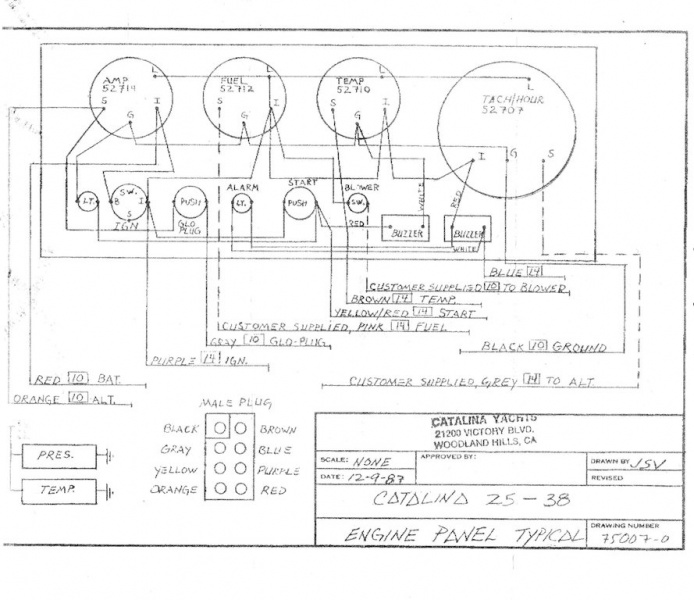 AMP. FUEL TEMP. TACH/HOUR
52714 52712 52710 52707
L L L L
S I S I S I
G G G
I G S
ALARM START BLOWER
LT. B SW. I PUSH LT. PUSH SW.
S
IGN GLO
PLUG
WHITE RED
RED BUZZER BUZZER
WHITE
BLUE 14
CUSTOMER SUPPLIED 10 TO BLOWER
BROWN 14 TEMP.
YELLOW/RED 14 START
CUSTOMER SUPPLIED, PINK 14 FUEL
GRAY 10 GLO-PLUG
BLACK 10 GROUND
PURPLE 14 IGN.
RED 10 BAT.
CUSTOMER SUPPLIED, GREY 14 TO ALT.
ORANGE 10 ALT.
MALE PLUG
BLACK BROWN
GRAY BLUE
YELLOW PURPLE
ORANGE RED
PRES.
TEMP.
CATALINA YACHTS
21200 VICTORY BLVD.
WOODLAND HILLS, CA
SCALE: NONE APPROVED BY: DRAWN BY JSV
DATE: 12-9-87 REVISED
CATALINA 25-38
ENGINE PANEL TYPICAL
DRAWING NUMBER
75007-0